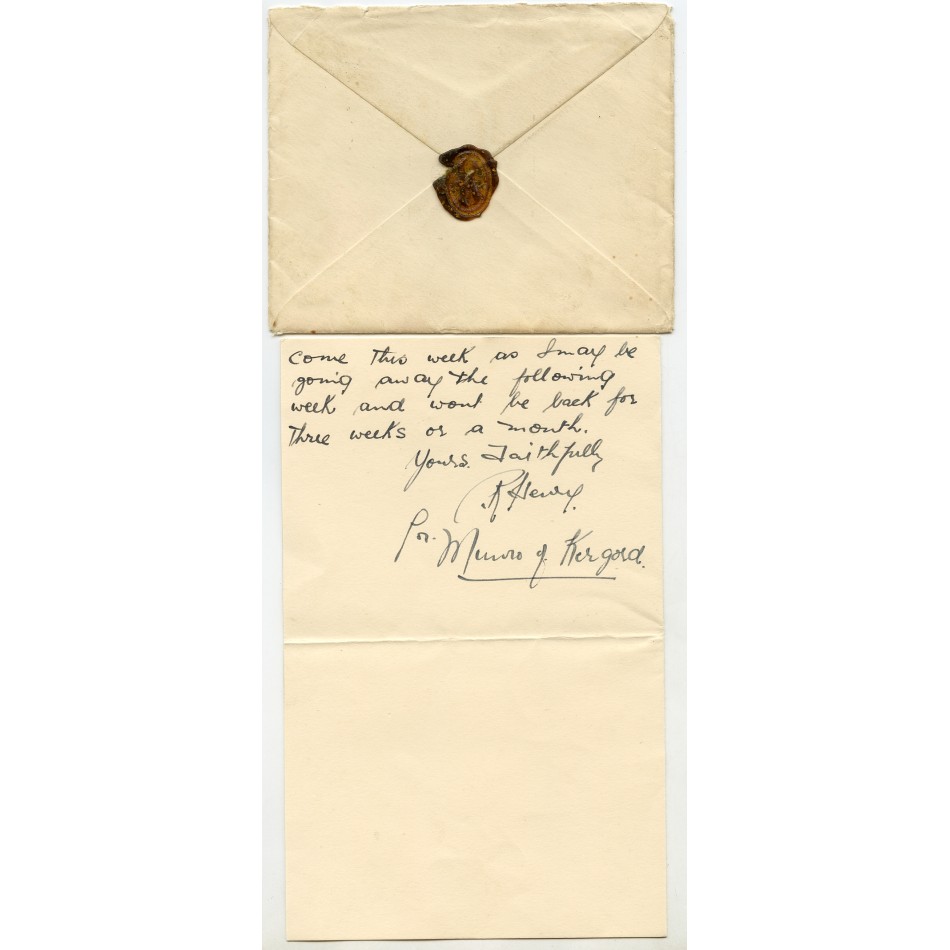 come this week as I may be
going away the following
week and wont be back for
three weeks or a month.
Yours. Faithfully
R Henry.
for. Munro of Kergord.